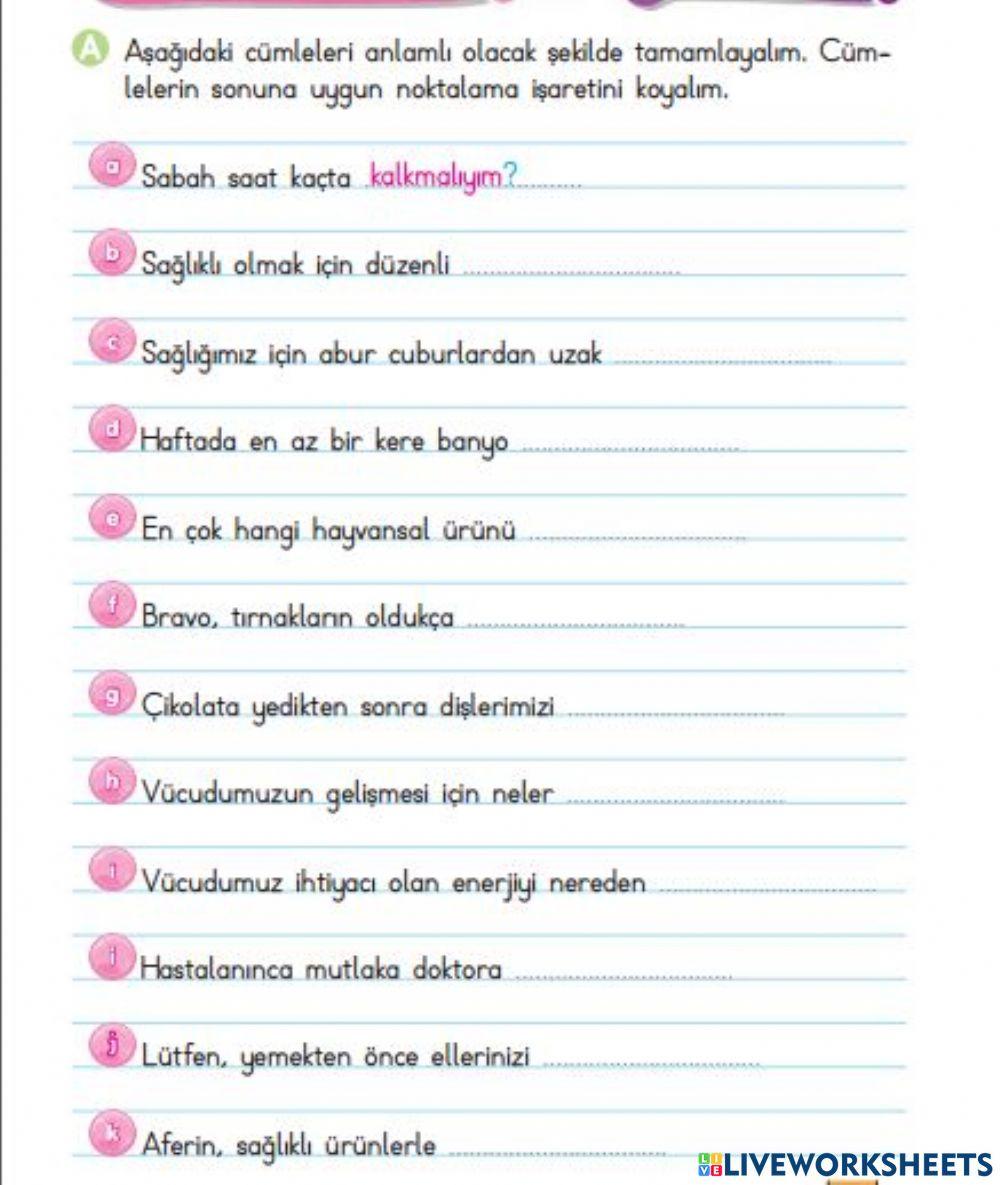 A Aşağıdaki cümleleri anlamlı olacak şekilde tamamlayalım. Cüm-
lelerin sonuna uygun noktalama işaretini koyalım.
a Sabah saat kaçta kalkmalıyım?..........
b Sağlıklı olmak için düzenli ..............................
c Sağlığımız için abur cuburlardan uzak ..............................
d Haftada en az bir kere banyo ..............................
e En çok hangi hayvansal ürünü ..............................
f Bravo, tırnakların oldukça ..............................
g Çikolata yedikten sonra dişlerimizi ..............................
h Vücudumuzun gelişmesi için neler ..............................
ı Vücudumuz ihtiyacı olan enerjiyi nereden ..............................
i Hastalanınca mutlaka doktora ..............................
j Lütfen, yemekten önce ellerinizi ..............................
k Aferin, sağlıklı ürünlerle ..............................
LIVE LIVEWORKSHEETS